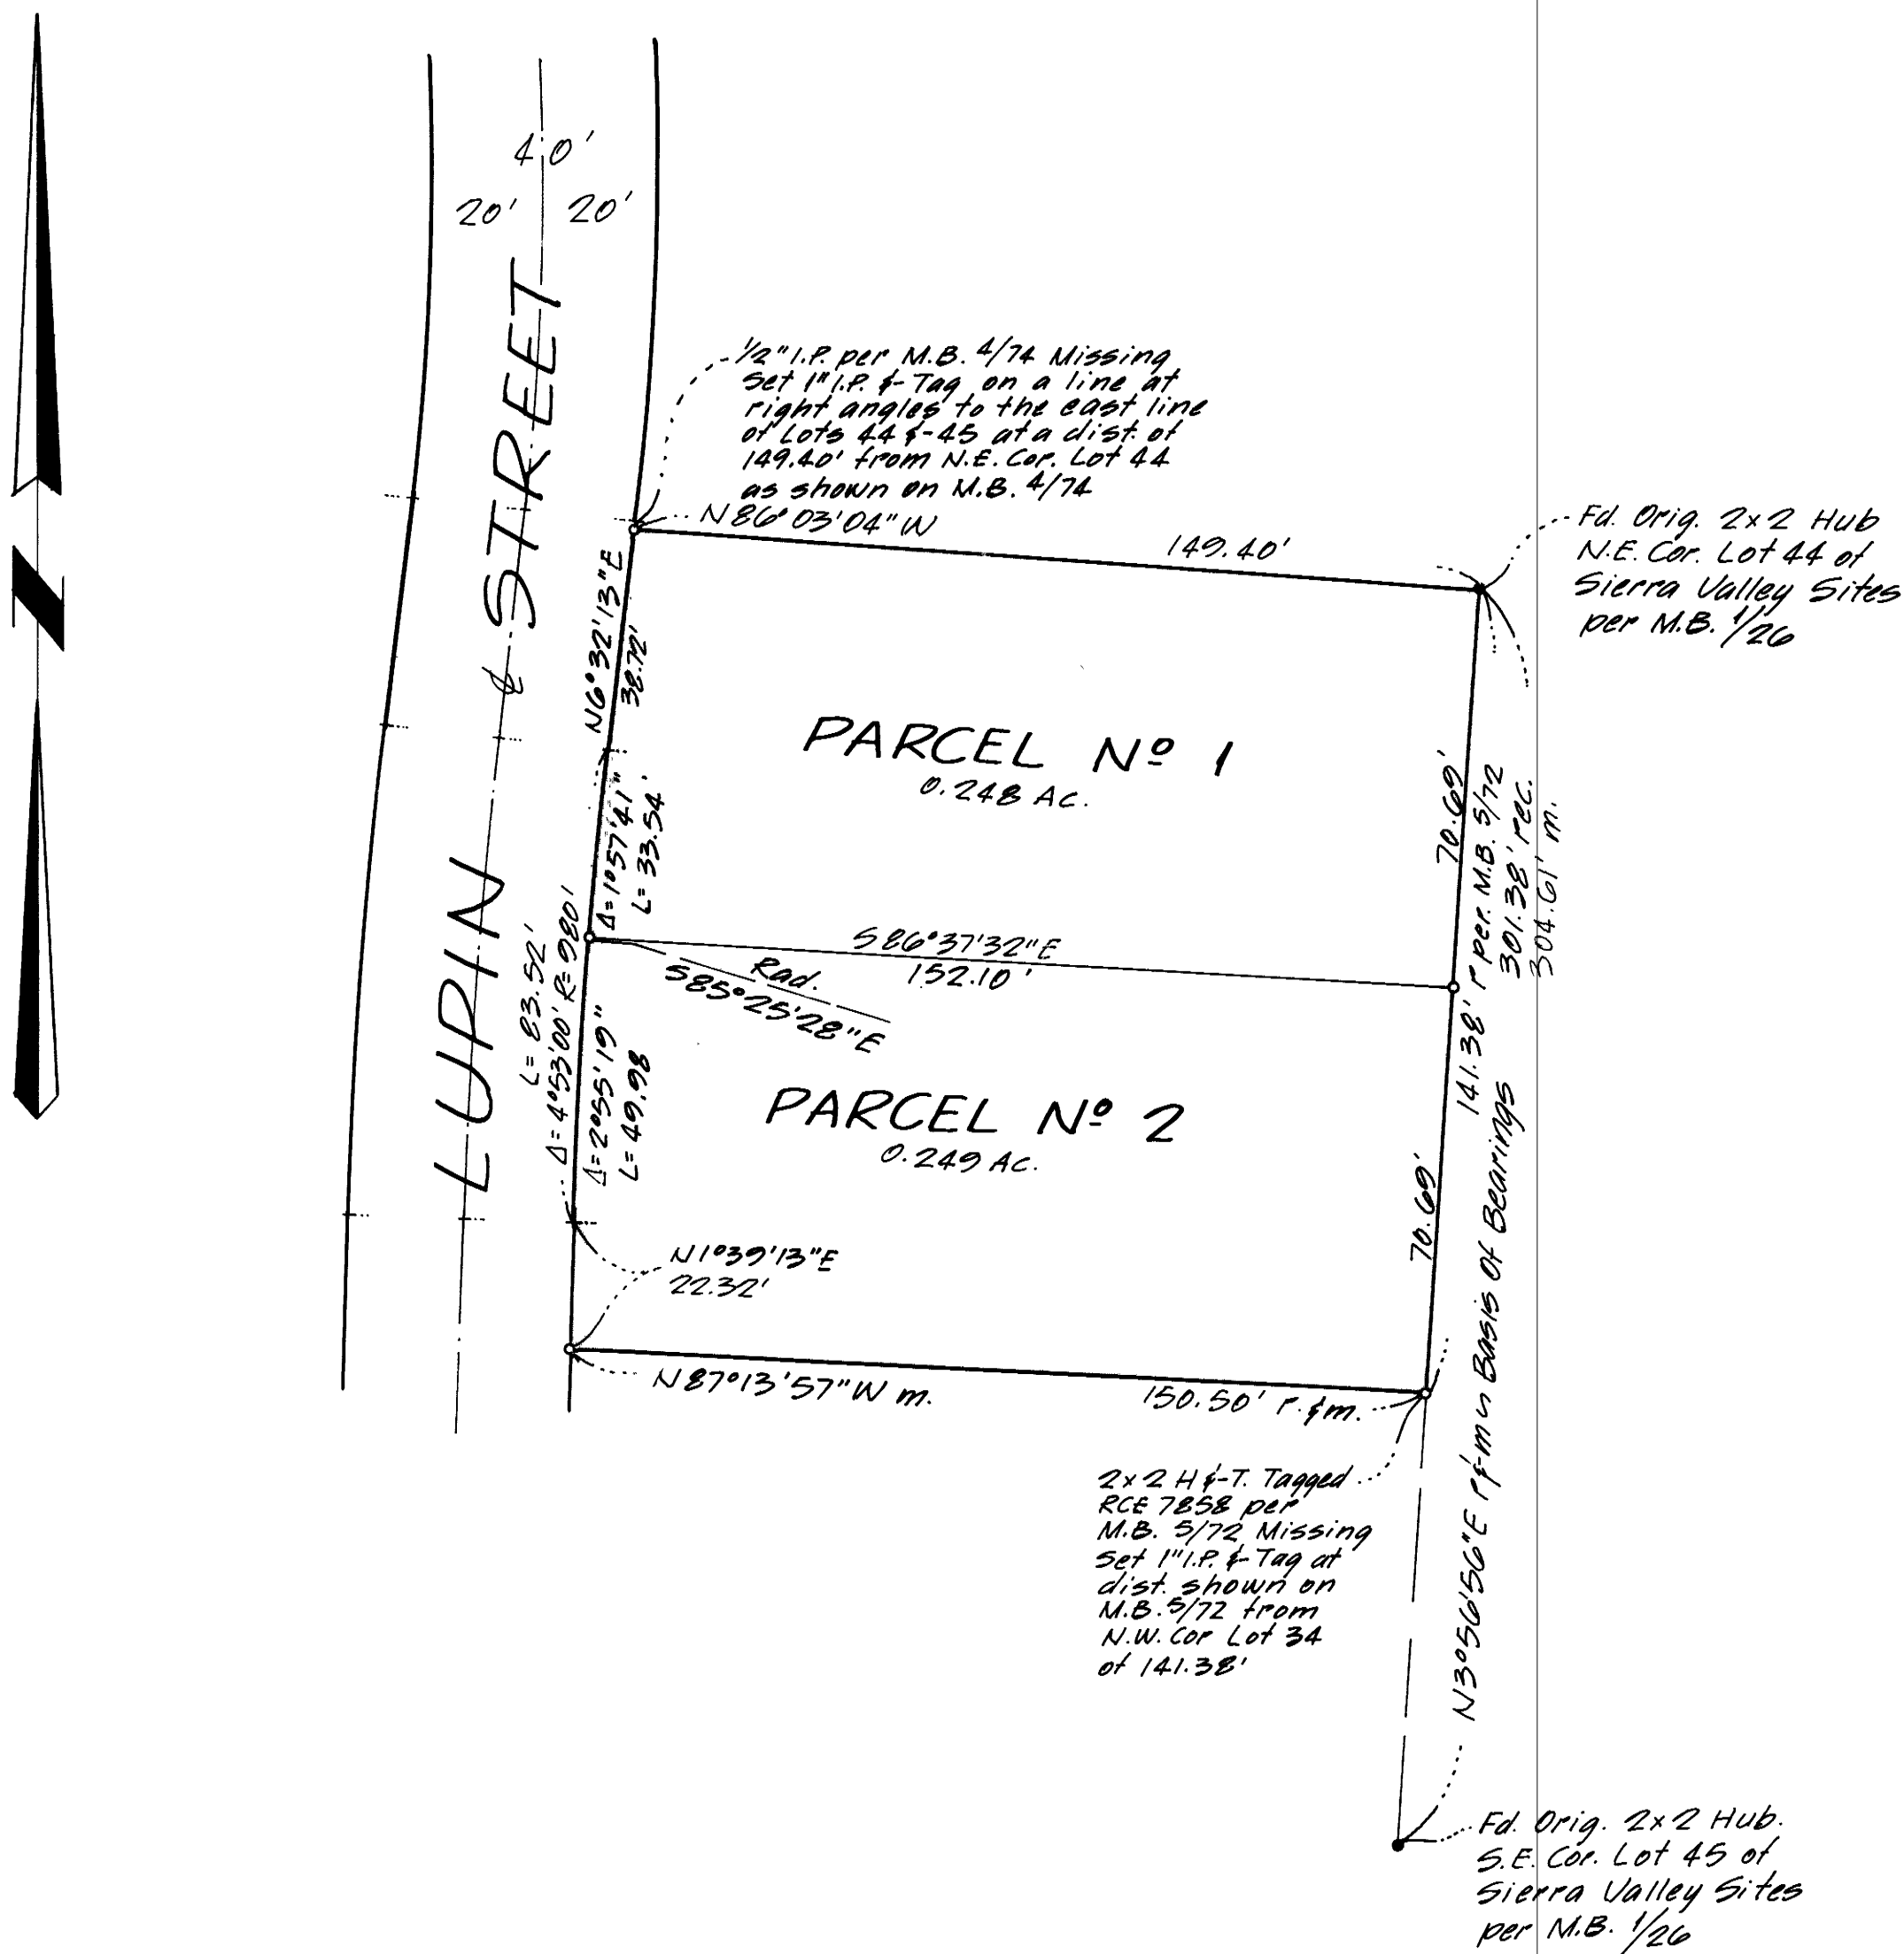 40'
20' 20'
LUPIN ℄ STREET
N
1/2" I.P. per M.B. 4/74 Missing
Set 1" I.P. & Tag on a line at
right angles to the east line
of Lots 44 & 45 at a dist. of
149.40' from N.E. Cor. Lot 44
as shown on M.B. 4/74
N86°03'04"W
149.40'
Fd. Orig. 2x2 Hub
N.E. Cor. Lot 44 of
Sierra Valley Sites
per M.B. 1/26
N6°32'13"E
38.72'
PARCEL Nº 1
0.248 AC.
Δ=1°57'41"
L=33.54'
70.69'
141.38' r per. M.B. 5/72
301.38' rec.
304.61' m.
S86°37'32"E
152.10'
Rad.
S85°25'28"E
L=83.52'
Δ=4°53'00" R=980'
Δ=2°55'19"
L=49.98
PARCEL Nº 2
0.249 AC.
70.69'
N1°39'13"E
22.32'
N87°13'57"W m.
150.50' r. & m.
N3°56'56"E r & m Basis of Bearings
2x2 H & T. Tagged
RCE 7858 per
M.B. 5/72 Missing
Set 1" I.P. & Tag at
dist. shown on
M.B. 5/72 from
N.W. Cor Lot 34
of 141.38'
Fd. Orig. 2x2 Hub.
S.E. Cor. Lot 45 of
Sierra Valley Sites
per M.B. 1/26